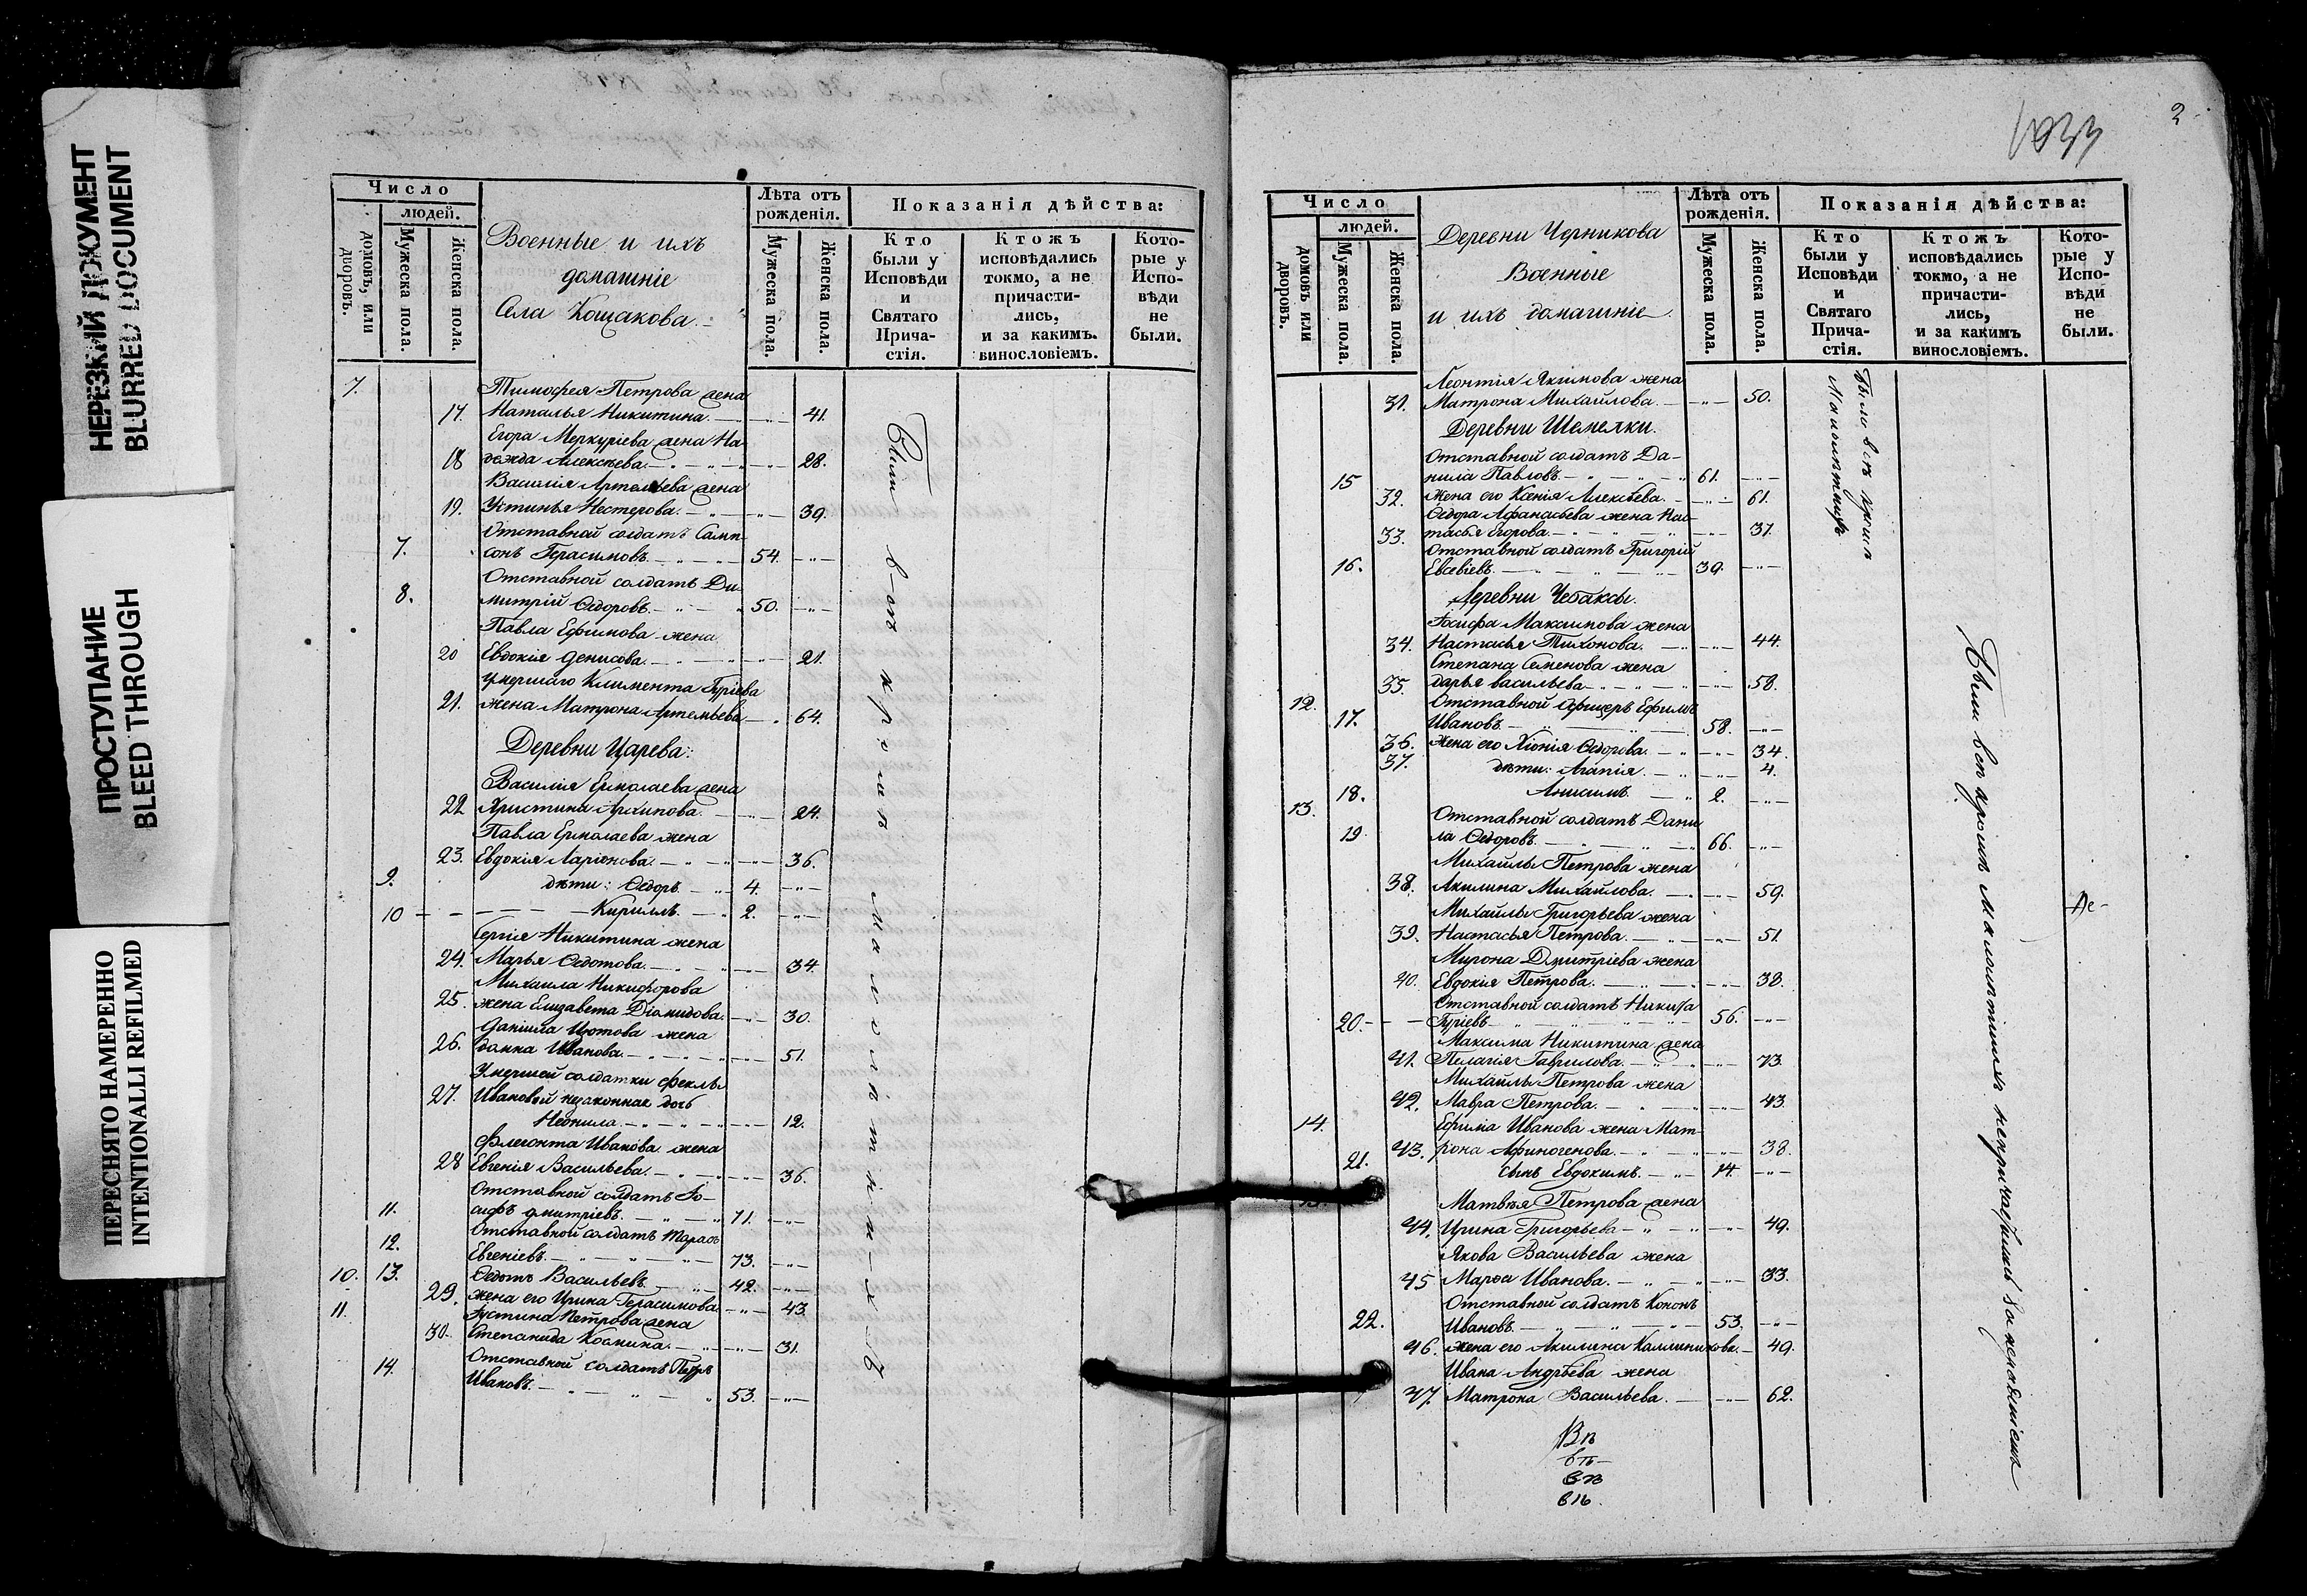 НЕРЕЗКИЙ ДОКУМЕНТ
BLURRED DOCUMENT
ПРОСТУПАНИЕ
BLEED THROUGH
ПЕРЕСНЯТО НАМЕРЕННО
INTENTIONALLI REFILMED
Число
людей.
домовъ, или дворовъ.
Мужеска пола.
Женска пола.
Военные и ихъ
домашніе
Села Кощакова.
Лѣта отъ рожденія.
Мужеска пола.
Женска пола.
Показанія дѣйства:
Кто были у Исповѣди и Святаго Прича-стія.
Ктожъ исповѣдались токмо, а не причасти-лись, и за какимъ. винословіемъ.
Кото-рые у Испо-вѣди не были.
7. Тимофея Петрова жена
17. Наталья Никитина. 41.
Егора Меркуріева жена На-
18 дежда Алексѣева. 28.
Василія Артемьева жена
19. Устинья Нестерова. 39.
Отставной солдатъ Самп-
7. сонъ Герасимовъ. 54.
Отставной солдатъ Ди-
8. митрій Ѳедоровъ. 50.
Павла Ефимова жена
20 Евдокія Денисова. 21.
умершаго Климента Гуріева
21. жена Матрона Артемьева 64.
Деревни Царева:
Василія Ермолаева жена
22 Христина Архипова. 24.
Павла Ермолаева жена
23. Евдокія Ларіонова. 36.
9. дѣти: Ѳедоръ 4.
10 Кириллъ 2.
Сергія Никитина жена
24. Марья Ѳедотова. 34.
Михаила Никифорова
25. жена Елизавета Діомидова. 30.
Даніила Изотова жена
26. Іоанна Иванова. 51.
Умершей солдатки Феклы
27. Ивановой незаконная дочь
Неонила. 12.
Флегонта Иванова жена
28 Евгенія Васильева. 36.
Отставной солдатъ Іо-
11. сифъ Дмитріевъ. 71.
Отставной солдатъ Тарасъ
12. Евгеніевъ 73.
10. 13. Ѳедотъ Васильевъ 42.
29. жена его Ирина Герасимова. 43.
11. Іустина Петрова жена
30. Степанида Космина. 31.
Отставной солдатъ Петръ
14. Ивановъ. 53.
Были в-сѣ кромѣ малолѣтни-хъ
2
1033
Число
людей.
домовъ или дворовъ.
Мужеска пола.
Женска пола.
Деревни Черникова
Военные
и ихъ домашніе.
Лѣта отъ рожденія.
Мужеска пола.
Женска пола.
Показанія дѣйства:
Кто были у Исповѣди и Святаго Прича-стія.
Ктожъ исповѣдались токмо, а не причасти-лись, и за какимъ винословіемъ.
Кото-рые у Испо-вѣди не были.
Леонтія Якимова жена
31. Матрона Михайлова. 50.
Деревни Шемелки.
Отставной солдатъ Да-
15 нила Павловъ. 61.
32. жена его Ксенія Алексѣева. 61.
Ѳедора Афанасьева жена Нас-
33. тасья Егорова. 31.
Отставной солдатъ Григорій
16. Евсевіевъ. 39.
Деревни Чебаксы.
Іосифа Максимова жена
34. Настасья Тихонова. 44.
Степана Семенова жена
35. Дарья Васильева 58.
12. Отставной Офицеръ Ефимъ
17. Ивановъ 58.
36. жена его Хіонія Ѳедорова. 34.
37. дѣти: Агапія. 4.
18. Анисимъ 2.
13. Отставной солдатъ Дани
19. ла Ѳедоровъ. 66.
Михайлы Петрова жена
38. Акилина Михайлова. 59.
Михайлы Григорьева жена
39. Настасья Петрова. 51.
Мирона Дмитріева жена
40. Евдокія Петрова. 38.
Отставной солдатъ Никита
20. Гуріевъ 56.
Максима Никитина жена
41. Пелагія Гаврилова. 73.
Михайлы Петрова жена
42. Мавра Петрова. 43.
14. Ефима Иванова жена Мат-
43. рона Афиногенова. 38.
21. сынъ Евдокимъ. 14.
Матвѣя Петрова жена
44. Ирина Григорьева 49.
Якова Васильева жена
45 Марѳа Иванова. 33.
Отставной солдатъ Кононъ
22. Ивановъ. 53.
46. жена его Акилина Калинникова. 49.
Ивана Андрѣева жена
47. Матрона Васильева. 62.
Были всѣ кромѣ
Малолѣтнихъ
Были всѣ кромѣ малолѣтнихъ